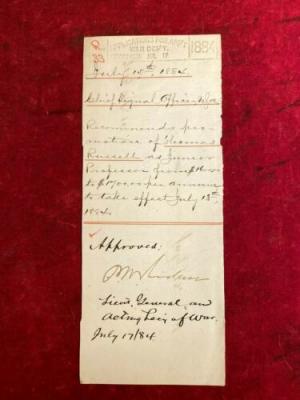 WAR DEPT.
1884
July 15th, 1884.
Chief Signal Officer
Recommends pro-
motion of Thomas
Russell as Junior
Professor from
to $1700.00 per annum
to take effect July 15th
1884.
Approved:
Lieut. General, and
Acting Secy of War.
July 17/84